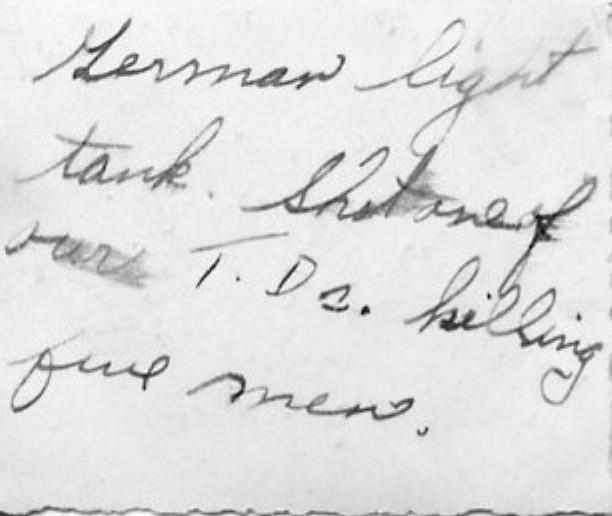 German light
tank. Shot one of
our T. Ds. killing
five men.